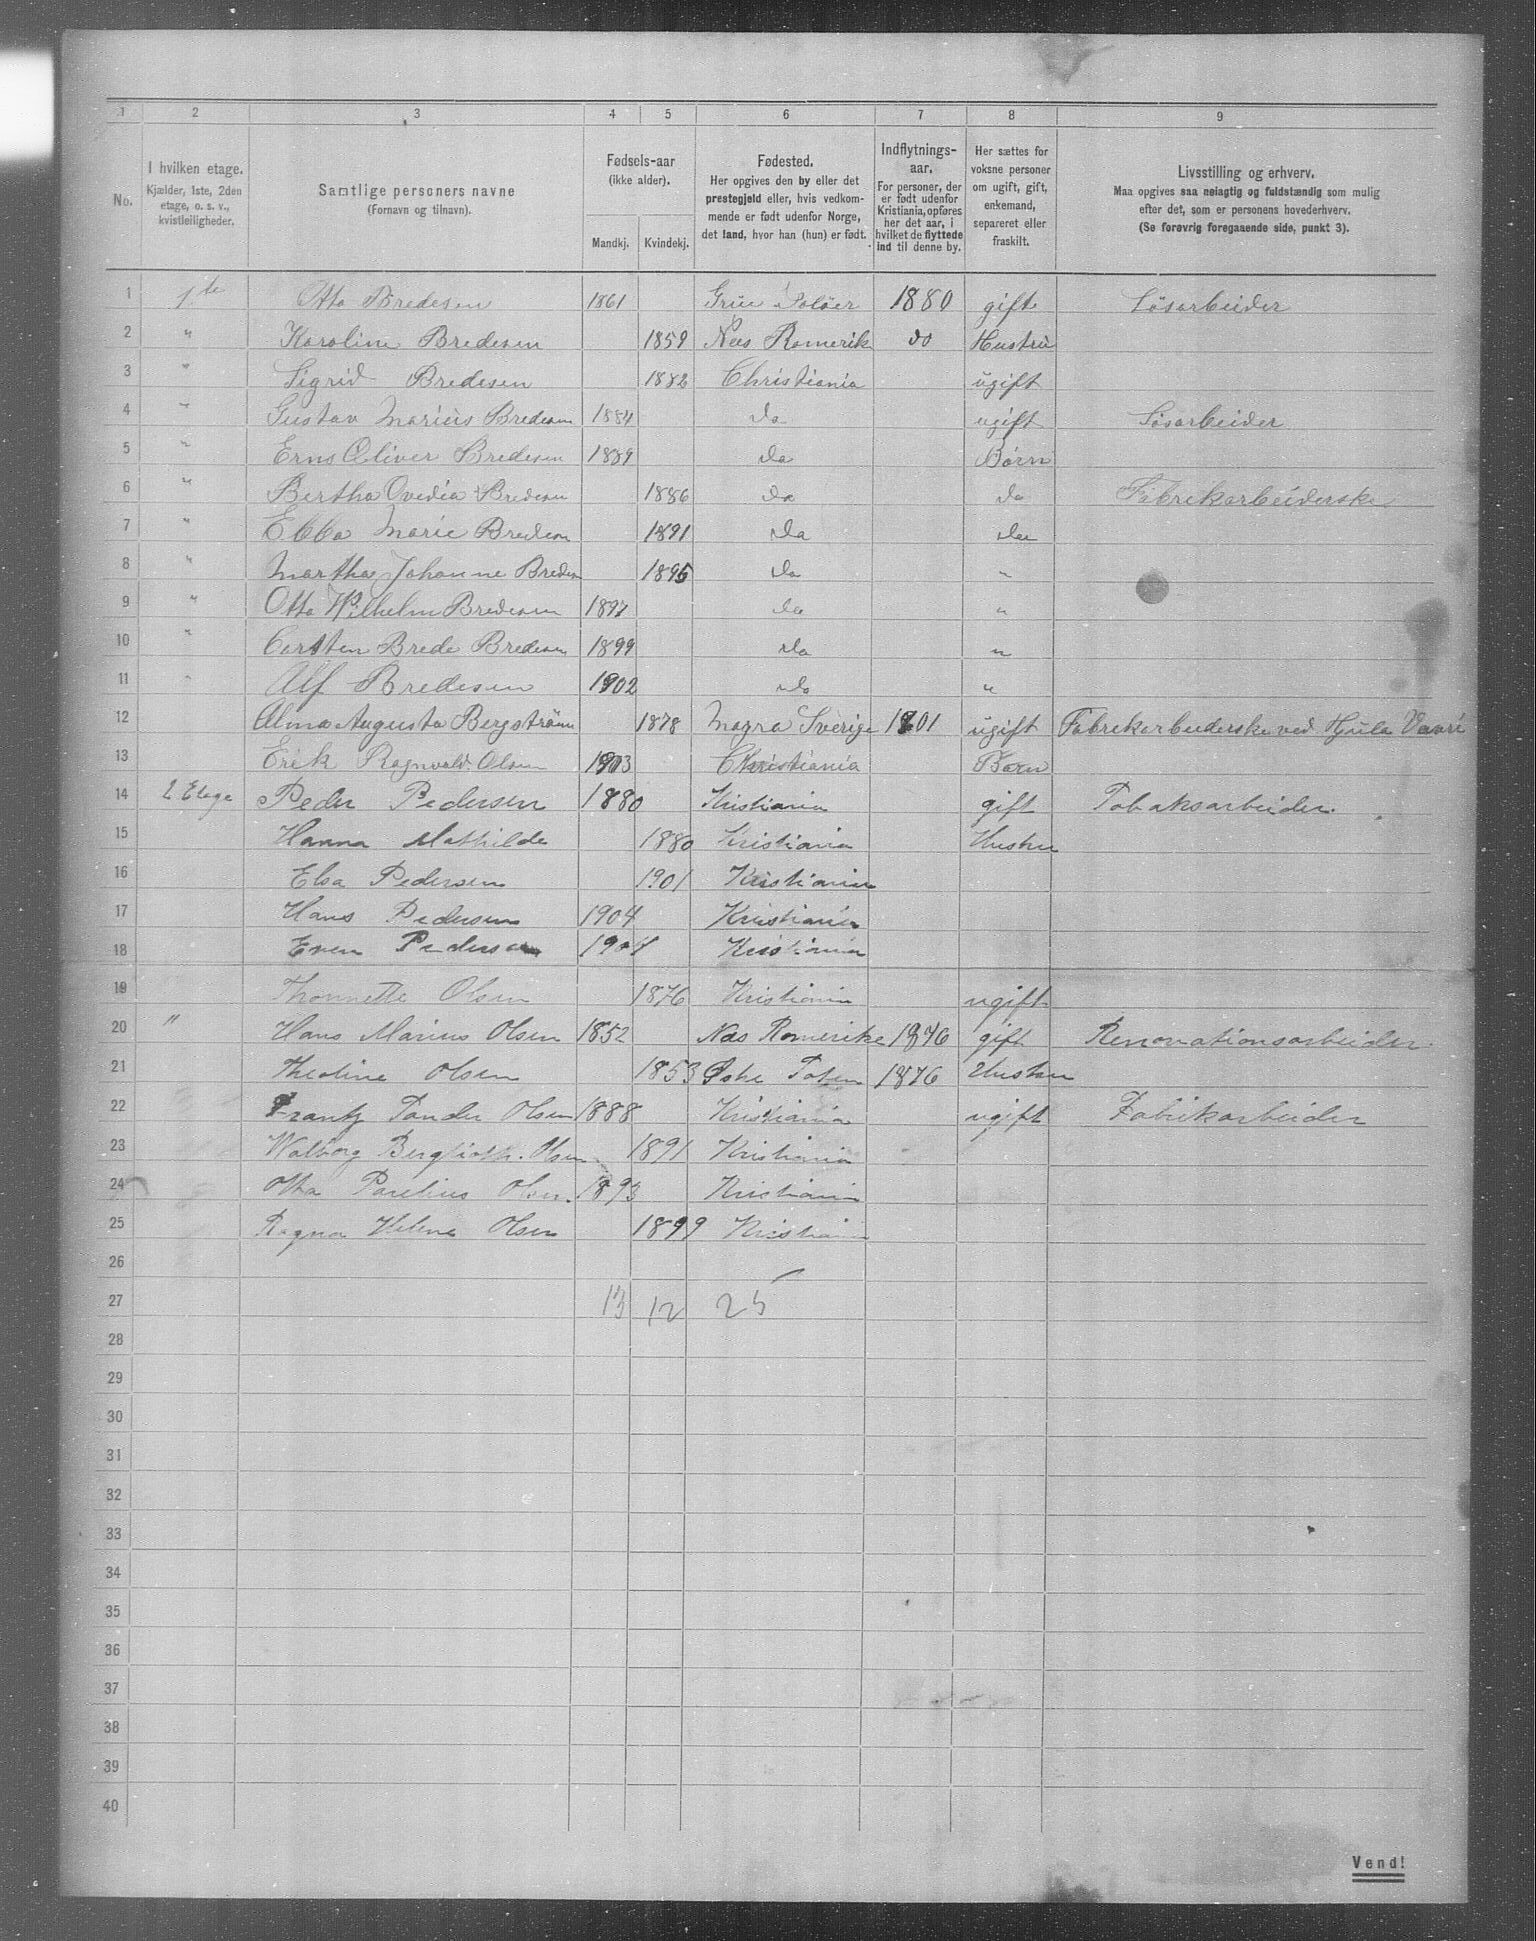 1 2 3 4 5 6 7 8 9
No.
I hvilken etage.
Kjælder, 1ste, 2den
etage, o. s. v.,
kvistleiligheder.
Samtlige personers navne
(Fornavn og tilnavn).
Fødsels-aar
(ikke alder).
Mandkj. Kvindekj.
Fødested.
Her opgives den by eller det
prestegjeld eller, hvis vedkom-
mende er født udenfor Norge,
det land, hvor han (hun) er født.
Indflytnings-
aar.
For personer, der
er født udenfor
Kristiania, opføres
her det aar, i
hvilket de flyttede
ind til denne by.
Her sættes for
voksne personer
om ugift, gift,
enkemand,
separeret eller
fraskilt.
Livsstilling og erhverv.
Maa opgives saa nøiagtig og fuldstændig som mulig
efter det, som er personens hovederhverv.
(Se forøvrig foregaaende side, punkt 3).
1 1te Otto Bredesen 1861 Grue Soløer 1880 gift Løsarbeider
2 " Karoline Bredesen 1859 Nes Romerik do Hustru
3 " Sigrid Bredesen 1882 Christiania ugift
4 " Gustav Marius Bredesen 1884 Do ugift Løsarbeider
5 " Erns Oliver Bredesen 1889 Do Børn
6 " Bertha Ovedia Bredesen 1886 Do Do Fabrekarbeiderske
7 " Ebba Marie Bredesen 1891 Do Do
8 " Martha Johanne Bredesen 1895 Do "
9 " Otto Wilhelm Bredesen 1897 Do "
10 " Carsten Brede Bredesen 1899 Do "
11 " Alf Bredesen 1902 Do "
12 Alma Augusta Bergstrøm 1878 Sverige 1901 ugift Fabrekarbeiderske ved Hjula Væveri
13 Erik Ragnvald Olsen 1903 Christiania Børn
14 2 Etage Peder Pedersen 1880 Kristiania gift Tobaksarbeider.
15 Hanna Mathilde 1880 Kristiania Hustru
16 Elsa Pedersen 1901 Kristiania
17 Hans Pedersen 1904 Kristiania
18 Even Pedersen 1904 Kristiania
19 Thonnette Olsen 1876 Kristiania ugift
20 " Hans Marius Olsen 1852 Næs Romerike 1876 gift Renovationsarbeider.
21 Theoline Olsen 1853 Østre Toten 1876 Hustru
22 Frantz Olsen 1888 Kristiania ugift Fabrikarbeider
23 Walborg Berglioth. Olsen 1891 Kristiania
24 Otto Paulius Olsen. 1893 Kristiania
25 Ragna Helene Olsen 1899 Kristiania
26
27 13 12 25
28
29
30
31
32
33
34
35
36
37
38
39
40
Vend!